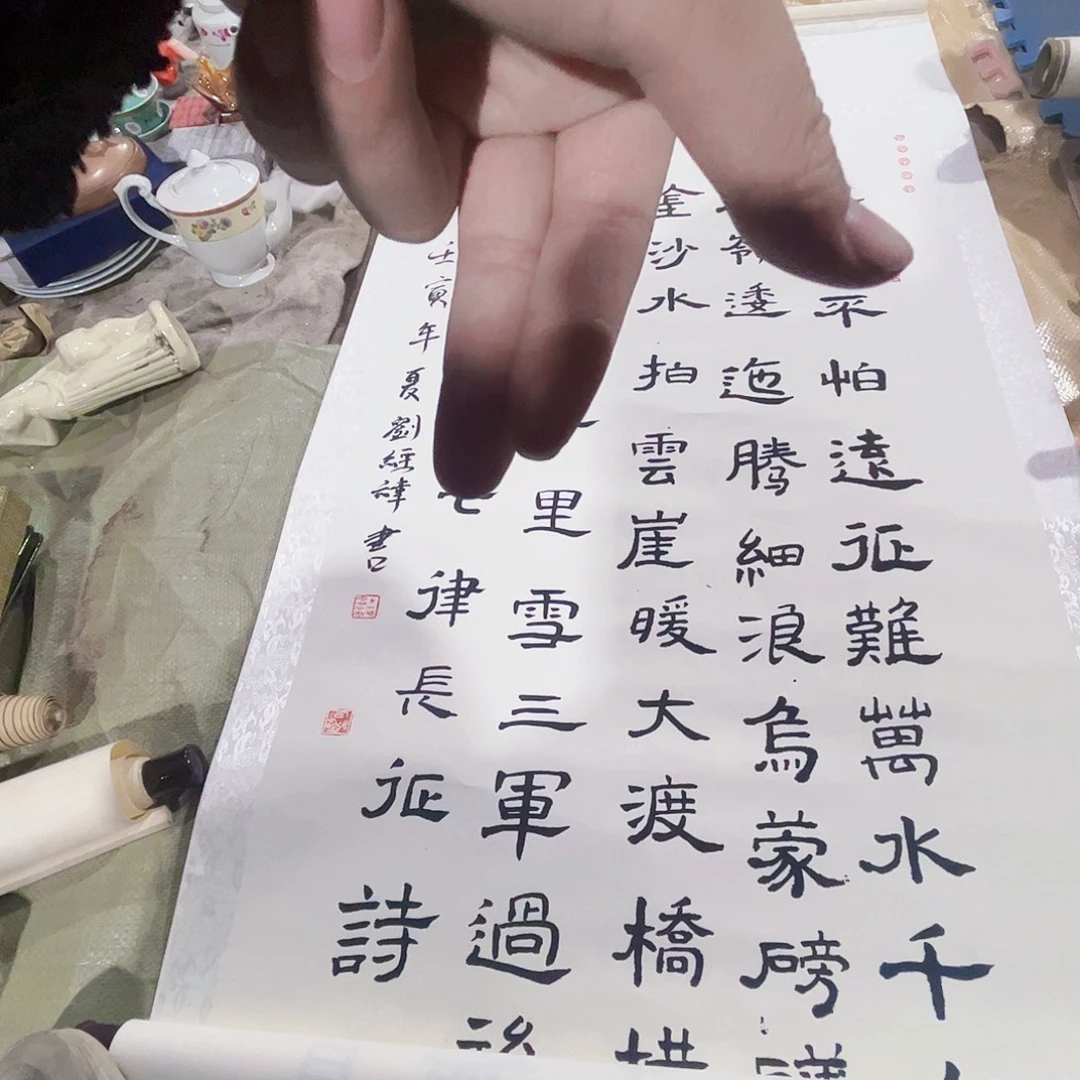 不怕遠征難萬水千
嶺逶迤騰細浪烏蒙磅礴
金沙水拍雲崖暖大渡橋
里雪三軍過後
七律長征詩
壬寅年夏劉經緯書